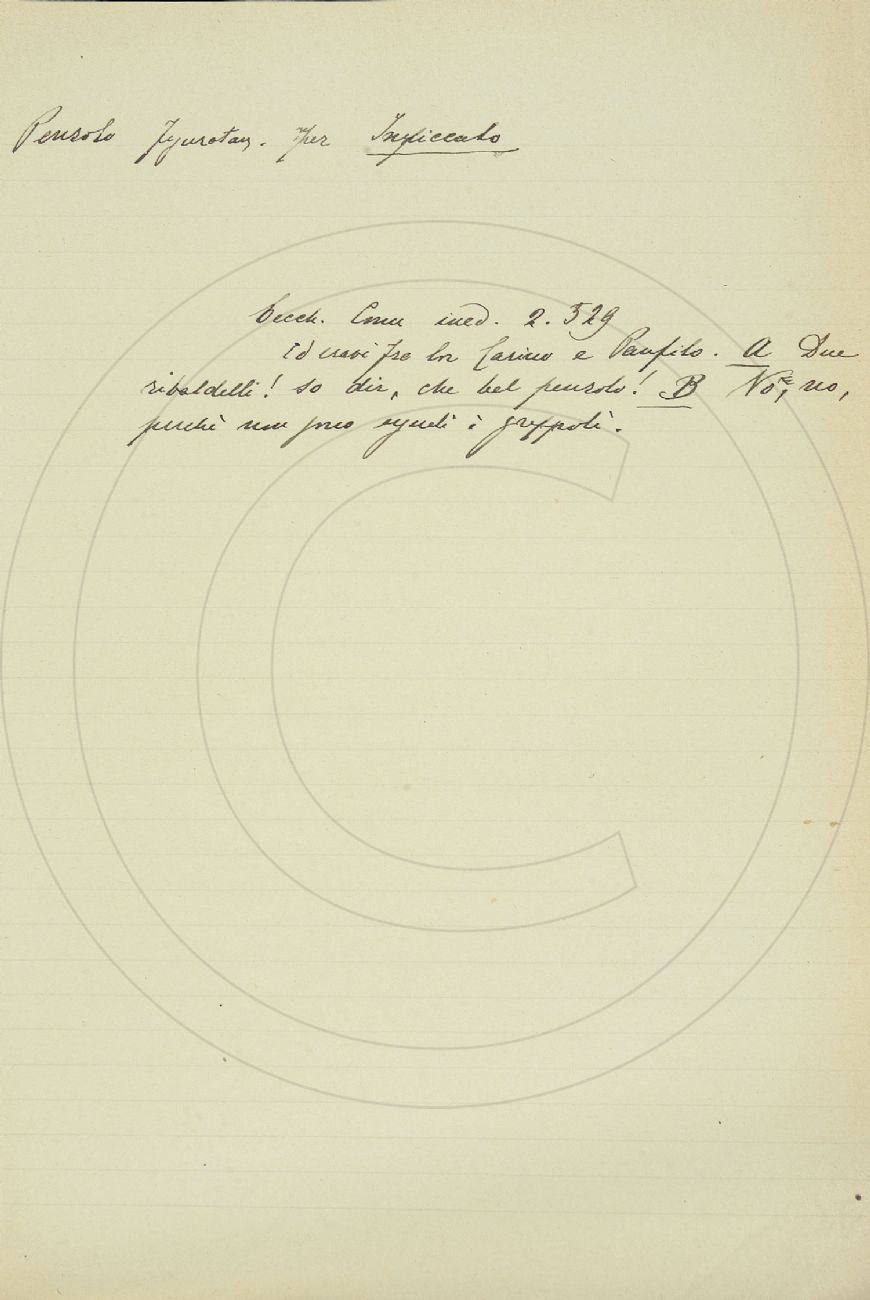 Penzolo Figuratam. per Impiccato
Cecch. Com. ined. 2. 529
Ed eravi fra lor Carino e Panfilo. A Due
ribaldelli! so dir, che bel penzolo! B No, no,
perchè non sono eguali i grappoli.